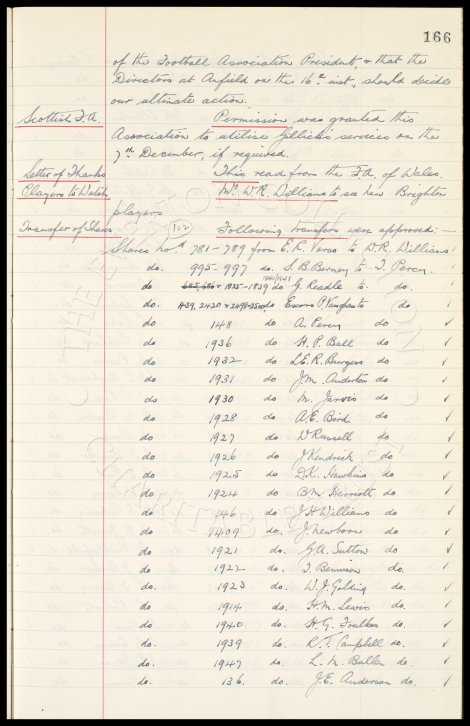 166
of the Football Association President, & that the
Directors at Anfield on the 16th inst, should decide
our ultimate action.
Scottish F.A. Permission was granted this
Association to utilise Gillick's services on the
7th December, if required.
Letter of Thanks This read from the F.A. of Wales.
Players to Watch Mr. W.R. Williams to see New Brighton
players
Transfer of Shares 102 Following transfers were approved:—
Shares No.s 781-789 from E.R. Verso to W.R. Williams
do. 995-997 do. S.B. Berney to T. Percy.
do 1835-1839 do G. Readle to do.
do 439, 2420 & do Exors P. do
do 148 do A. Percy do
do 1936 do H.P. Ball do
do 1932 do L.E.R. Burgess do
do 1931 do J.M. Anderton do
do 1930 do M. Jarvis do
do 1928 do A.E. Bird do
do 1927 do W Russell do
do 1926 do J Kendrick do
do 1925 do D.K. Hawkins do
do 1924 do B.M. Herriott do
do 146 do J H Williams do
do 1409 do J. Newborn do
do 1921 do. G.A. Sutton do
do 1922 do. T. Bennison do.
do. 1923 do. W.J. Golding do.
do 1914 do H.M. Lewis do.
do 1940 do. H.G. Foulkes do.
do. 1939 do. R.T. Campbell do.
do. 1947 do. L.M. Bullen do.
do. 136. do. J.E. Anderson do.